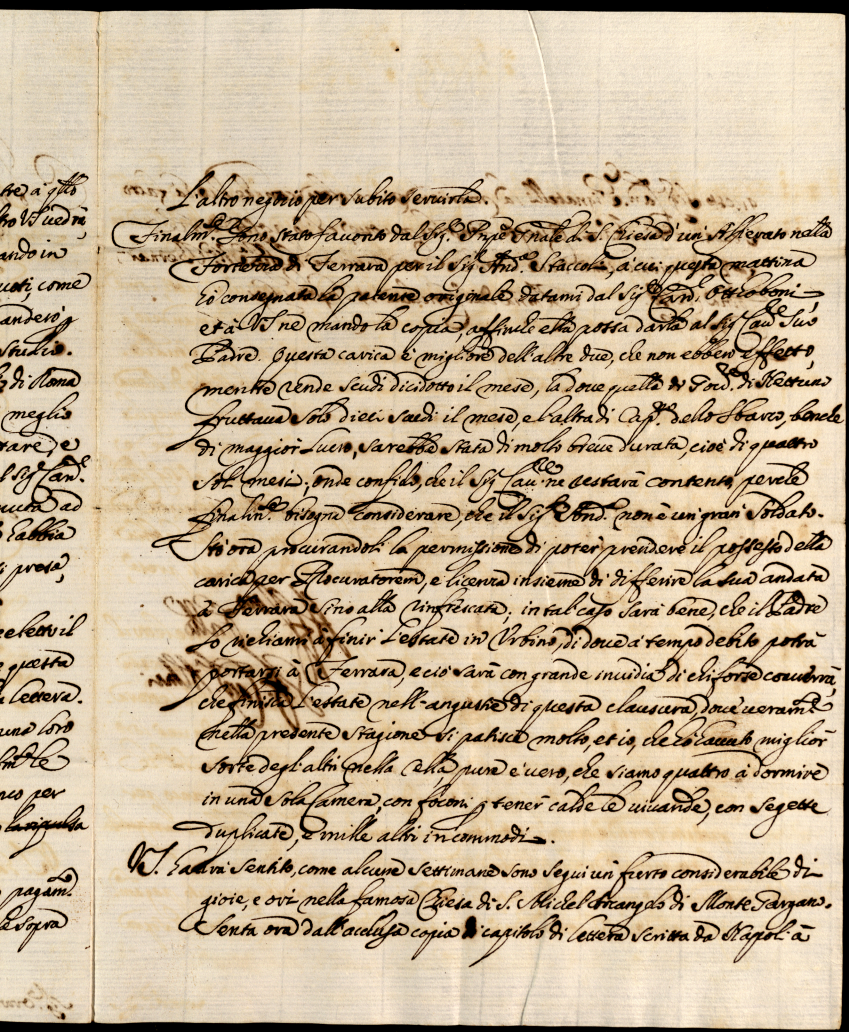 tre à qllo
ltro VS vedrà
ando in
ueti, come
anderò p
Studio.
di Roma
meglio
rare, e
l Sig.r Card.e
nuta ad
habbia
presa,
elett il
questa
lettera.
una loro
le
nco per
la ripulsa
pagam.to
le sopra
L'altro negotio per subito servirla.
Finalm.te sono stato favorito dal Sig.r Pnpe Gnale di S. Chiesa d'un Alfierato nella
Fortezza di Ferrara per il Sig.r And.a Staccoli, à cui questa mattina
hò consegnata la patente originale datami dal Sig.r Card. Ottoboni,
et à VS ne mando la copia, affinche ella possa darla al Sig.r Cav.re Suo
Padre. Questa carica è migliore dell'altre due, che non ebbero effetto,
mentre rende scudi diciotto il mese, la dove quella di Gov.re di Nettuno
fruttava solo dieci scudi il mese, e l'altra di Cap.o dello Sbarco, benche
di maggior lucro, sarebbe stata di molto breve durata, cioè di quattro
soli mesi; onde confido, che il Sig.r Cav.re ne restarà contento, perche
finalm.te bisogna considerare, che il Sig.r And.a non è un gran soldato.
Stò ora procurandoli la permissione di poter prendere il possesso della
carica per Procuratorem, e licenza insieme di differire la sua andata
à Ferrara sino alla rinfrescata; in tal caso sarà bene, che il Padre
lo richiami à finir l'estate in Urbino, di dove à tempo debito potrà
portarsi à Ferrara, e ciò sarà con grande invidia di chi forse converrà,
che finisca l'estate nell'angustie di questa clausura, dove veram.te
nella presente stagione si patisce molto, et io, che hò havuto miglior
sorte degl'altri nella cella, pure è vero, che siamo quattro à dormire
in una sola Camera, con foconi p tener calde le vivande, con segette
duplicate, e mille altri incommodi.
VS. haverà sentito, come alcune settimane sono seguì un furto considerabile di
gioie, e ori nella famosa Chiesa di S. Michel Arcangelo di Monte Gargano.
Senta ora dall'acclusa copia di capitolo di lettera scritta da Napoli à